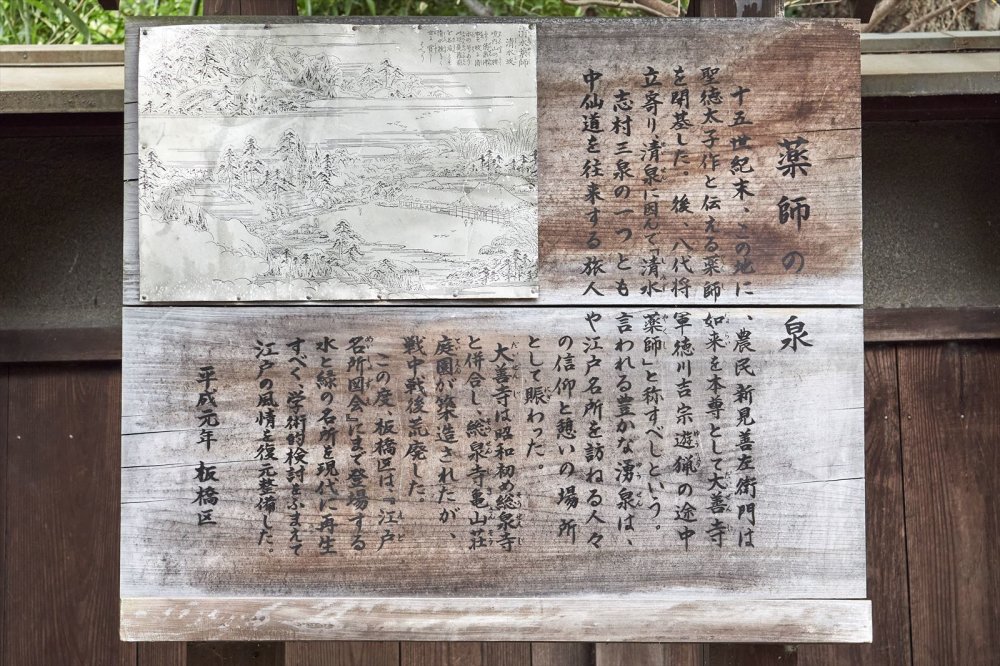 薬師の泉
十五世紀末、この地に、農民新見善左衛門は
聖徳太子作と伝える薬師如来を本尊として大善寺
を開基した。後、八代将軍徳川吉宗遊猟の途中
立寄り、清泉に因んで「清水薬師」と称すべしという。
志村三泉の一つとも言われる豊かな湧泉は、
中仙道を往来する旅人や江戸名所を訪ねる人々
の信仰と憩いの場所
として賑わった。
大善寺は昭和初め総泉寺
と併合し、総泉寺亀山荘
庭園が築造されたが、
戦中戦後荒廃した。
この度、板橋区は、『江戸
名所図会』にまで登場する
水と緑の名所を現代に再生
すべく、学術的検討をふまえて
江戸の風情を復元整備した。
平成元年 板橋区
清水坂